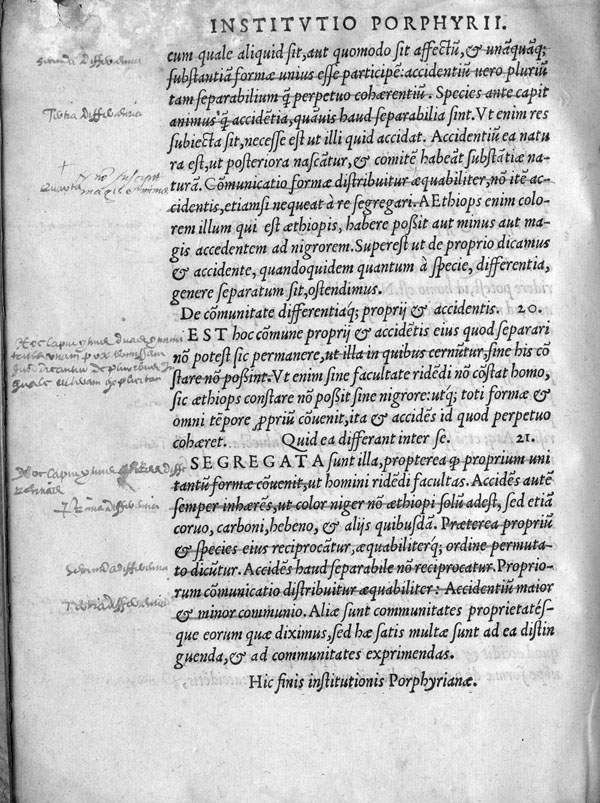 INSTITVTIO PORPHYRII.
cum quale aliquid sit, aut quomodo sit affectũ, & unãquãq;
substantiã formæ unius esse participẽ: accidentiũ uero pluriũ
tam separabilium q̃ perpetuo cohærentiũ. Species ante capit
animus q̃ accidẽtia, quãuis haud separabilia sint. Vt enim res
subiecta sit, necesse est ut illi quid accidat. Accidentiũ ea natu
ra est, ut posteriora nascãtur, & comitẽ habeãt substãtiæ na-
turã. Cõmunicatio formæ distribuitur æquabiliter, nõ itẽ ac-
cidentis, etiamsi nequeat à re segregari. AEthiops enim colo-
rem illum qui est æthiopis, habere poßit aut minus aut ma-
gis accedentem ad nigrorem. Superest ut de proprio dicamus
& accidente, quandoquidem quantum à specie, differentia,
genere separatum sit, ostendimus.
De cõmunitate differentiaq; proprij & accidentis. 20.
EST hoc cõmune proprij & accidẽtis eius quod separari
nõ potest sic permanere, ut illa in quibus cernũtur, sine his cõ
stare nõ poßint. Vt enim sine facultate ridẽdi nõ cõstat homo,
sic æthiops constare nõ poßit sine nigrore: utq; toti formæ &
omni tẽpore ꝓpriũ cõuenit, ita & accidẽs id quod perpetuo
cohæret. Quid ea differant inter se. 21.
SEGREGATA sunt illa, propterea ꝙ proprium uni
tantũ formæ cõuenit, ut homini ridẽdi facultas. Accidẽs autẽ
semper inhærẽs, ut color niger nõ æthiopi solũ adest, sed etiã
coruo, carboni, hebeno, & alijs quibusdã. Præterea propriũ
& species eius reciprocãtur, æquabiliterq; ordine permuta-
to dicũtur. Accidẽs haud separabile nõ reciprocatur. Proprio-
rum cõmunicatio distribuitur æquabiliter: Accidentiũ maior
& minor communio. Aliæ sunt communitates proprietatés-
que eorum quæ diximus, sed hæ satis multæ sunt ad ea distin
guenda, & ad communitates exprimendas.
Hic finis institutionis Porphyrianæ.